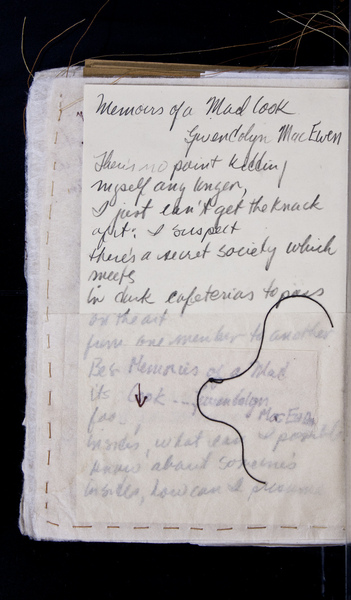 Memoirs of a Mad Cook
Gwendolyn MacEwen
There's no point kidding
myself any longer,
I just can't get the knack
of it; I suspect
there's a secret society which
meets
in dark cafeterias to pass
on the art
from one member to another
Be Memories of a Mad
its Cook --- Gwendolyn
foo MacEwen
insides, what can I possibly
know about someone's
insides, how can I presume